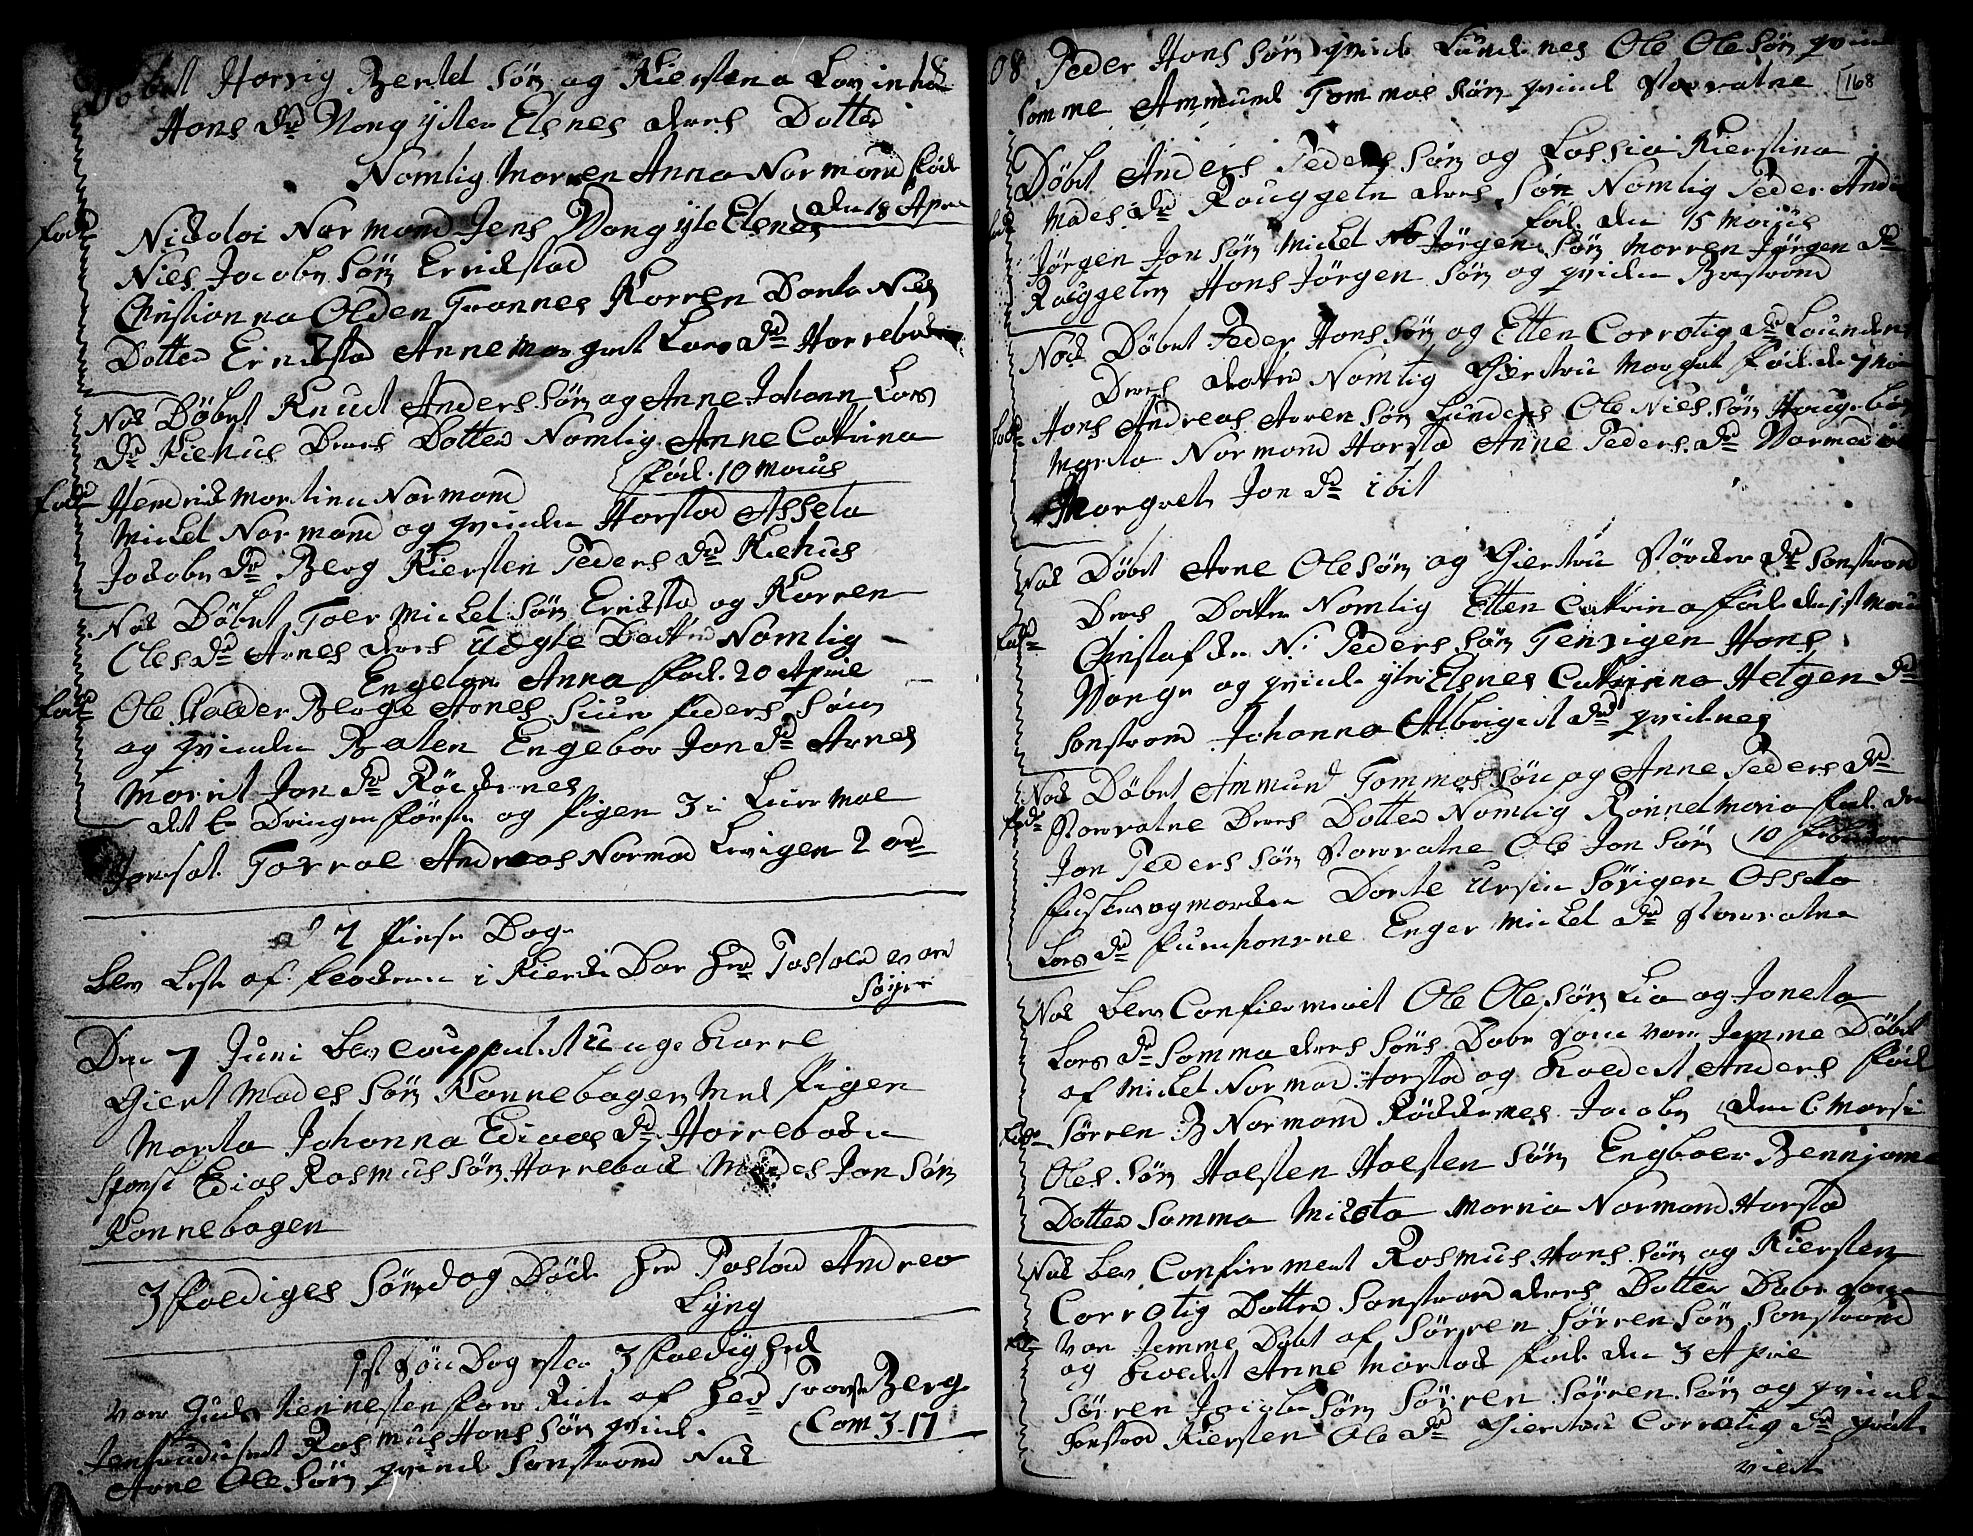 Döbet Horvig Bertel Sön og Kierstena Lovinha
Hans dr Vong ytter Elsnes deres Dotter
Nomlig Marren Anna Normand föd
den 18 Apri
fad Nicolai Normand Jens Vong ytte Elsnes
Niels Jacobn Sön Erickstad
Christianna Olden Tronnes Karren Dorta Niels
Dotter Erickstad Anne Margret Lars dr Harrebacken
Nock Döbet Knud Anders Sön og Anne Johann Lars
dr Kiehus Deres Dotter Nomlig Anne Cattrina
föd 10 maius
fad Hendrick Martinu Normand
Mickel Normand og qvinden Harstad Asseta
Jacobn dr Berg Kiersten Peders dr Kiehus
Nock Döbet Toer Mickel Sön Erickstad og Karren
Oles dr Arnes deres Uægte Datter Nomlig
Engelan Anna föd 20 Aprie
fad Ole Halder Berge Arnes Siur Peders Sön
og qvinden Baten Engebor Jon dr Arnes
Marrit Jon dr Röckenes
det Er Drengen förste og Pigen 3 i Leiermae
Torral Andreas Normad Levigen 2 ord
ad 2 Pinse Dag
blev Leste af Flocken i Kiercke Dor Her Pastoer er ord
Söyer
Den 7 Juni blev Couppulert Unge Karre
Giert Mades Sön Konnebagen Med Pigen
Marta Johanna Edias dr Harrebacke
Sponsi Edias Rasmus Sön Harreback Mades Jon Sön
Konnebagen
3 foldiges Söndag Död Her Pastor Andrea
Lyng
1st Sön Dag efter 3 foldighed
var Guds tiennesten forRett af Her Provst Berg
Com 3-17
Rasmus Hans Sön qvind
Arne Ole Sön qvind Sonstrand Nock
08 Peder Hans Sön qvind Lundenes Ole Ole Sön qvind
168
Somme Ammund Tommas Sön qvind Storvatne
Döbet Anders Peders Sön og Lossia Kierstina
Mades dr Rouggeln deres Sön Nomlig Peder Andr
föd den 15 Maijus
fad Jörgen Jon Sön Mickel Jörgen Sön Marren Jörgen dr
Rouggeln Hans Jörgen Sön og qvinden Borstrand
Nock Döbet Peder Hans Sön og Ellen Corrotig dr Lounden
Deres datter Nomlig Giertru Margret föd de 7 Mai
fad Hans Andreas Arren Sön Lundens Ole Niels Sön Hougebön
Marta Normand Harsta Anne Peders dr Normand
Margret Jon dr ibit
Nock Döbet Arne Ole Sön og Giertru Störcker dr Sonstrand
Deres Datter Nomlig Ellen Cattrina föd den 1st Maii
fad Christaf N: Peders Sön Tenvigen Hans
Vange og qvind yttr Elsnes Cattrina Helgen dr
Sonstrand Johanna Albrigect dr qvitnes
Nock Döbet Ammund Tommas Sön og Anne Peders dr
Storvatne Deres Dotter Nomlig Rönnel Maria föd den
10 Februar
fad Jon Peders Sön Storvatne Ole Jon Sön
Fuskevogmarken Dorte Ursin Sörvigen Osseta
Lars dr Enger Mickel dr Storvatne
Nock blev Confiermeret Ole Ole Sön Lia og Joneta
Lars dr Samma deres Söns Dabe Som var Jemme Döbet
af Mickel Normad Harstad og Kaldet Anders föd
den 6 Marsi
fad Sörren B Normand Röckenes Jacobn
Oles Sön Halsten Halsten Sön Engboer Bennjame
Dotter Samma Micela Marria Normand Harstad
Nock blev Confierment Rasmus Hans Sön og Kiersten
Corrotig Dotter Sonstrand deres Dotter Dabe Som
var Jemme Döbt af Sörren Sörren Sön Sonstrand
og Kaldet Anne Martae föd den 3 Aprie
fad Sörren Jacobn Sön Sörren Sörren Sön og qvinde
Sonstrand Kiersten Ole dr Giertru Corrotig dr qvit
vick